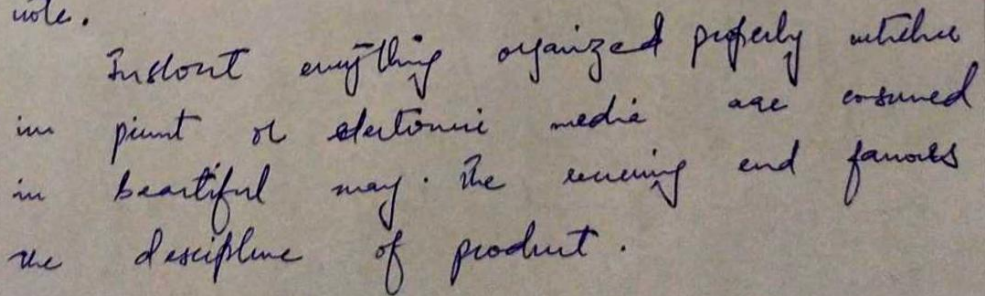 note.
Instout everything organized properly whether
in print or electronic media are consumed
in beautiful way. The receiving end favours
the discipline of product.